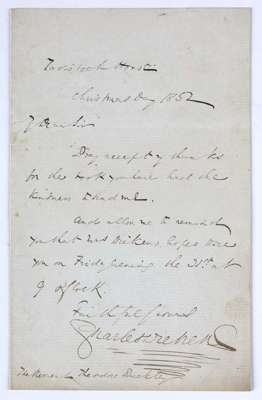 Tavistock House
Christmas Day 1852
My Dear Sir
Pray accept my thanks
for the book you have had the
kindness to send me.
And allow me to remind
you that Mrs Dickens hopes to see
you on Friday evening the 31st at
9 o'Clock.
Faithfully Yours
Charles Dickens
The Reverend Theodore Buckley